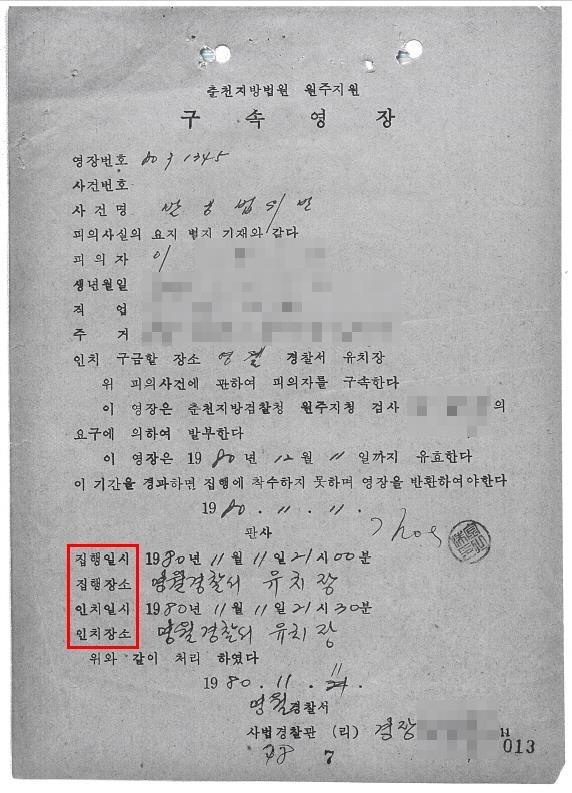 춘천지방법원 원주지원
구 속 영 장
영장번호 80 1345
사건번호
사 건 명 반공법위반
피의사실의 요지 별지 기재와 같다
피 의 자 이
생년월일
직 업
주 거
인치 구금할 장소 영월 경찰서 유치장
위 피의사건에 관하여 피의자를 구속한다
이 영장은 춘천지방검찰청 원주지청 검사 의
요구에 의하여 발부한다
이 영장은 1980년 12월 11일까지 유효한다
이 기간을 경과하면 집행에 착수하지 못하며 영장을 반환하여야한다
1980. 11. 11.
판사
집행일시 1980년 11월 11일 21시 00분
집행장소 영월경찰서 유치장
인치일시 1980년 11월 11일 21시 30분
인치장소 영월경찰서 유치장
위와 같이 처리 하였다
1980. 11. 11
영월경찰서
사법경찰관 (리) 경장
11
013
7